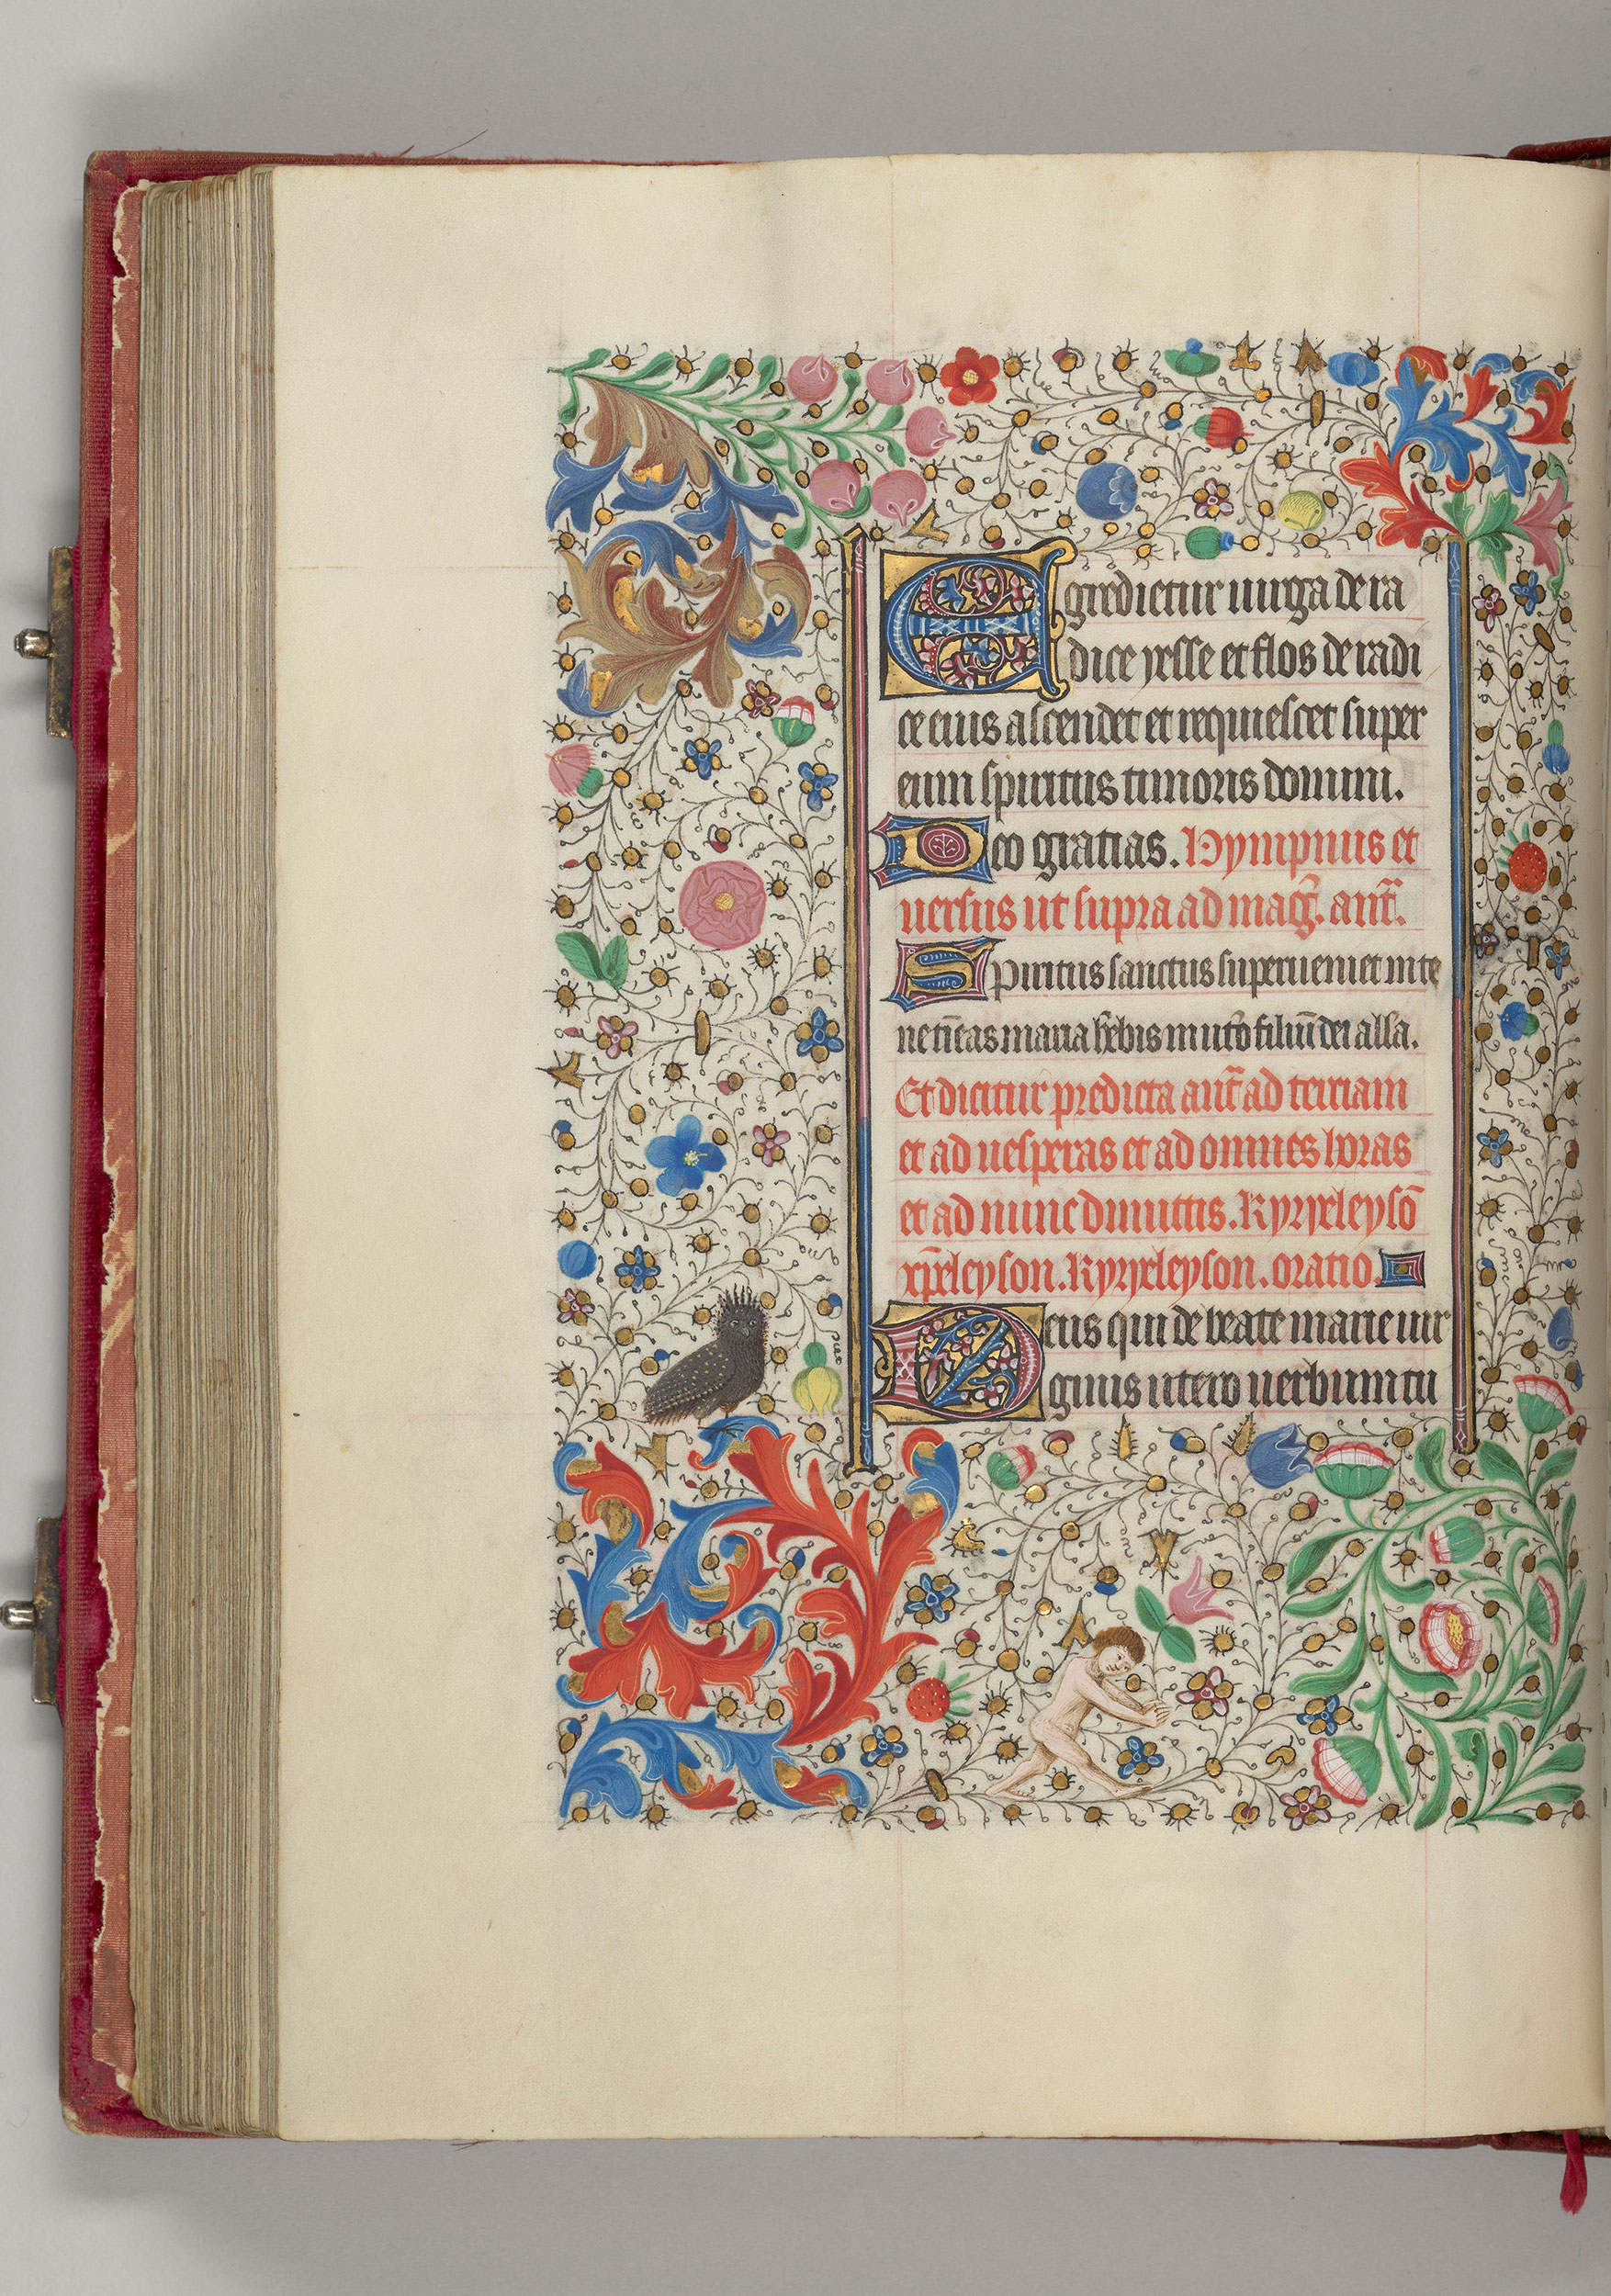 Egredietur uirga de ra
dice yesse et flos de radi
ce eius ascendet et requiescet super
eum spiritus timoris domini.
Deo gratias. Hympnus et
uersus ut supra ad mag̃. ant̃.
Spiritus sanctus superueniet in te
ne timeas maria hẽbis in utõ filiũ dei alla.
Et dicitur predicta ant̃ ad terciam
et ad uesperas et ad omnes horas
et ad nunc dimittis. Kyryeleysõ
xp̃eleyson. Kyryeleyson. oratio.
Deus qui de beate marie uir
ginis utero uerbum tu